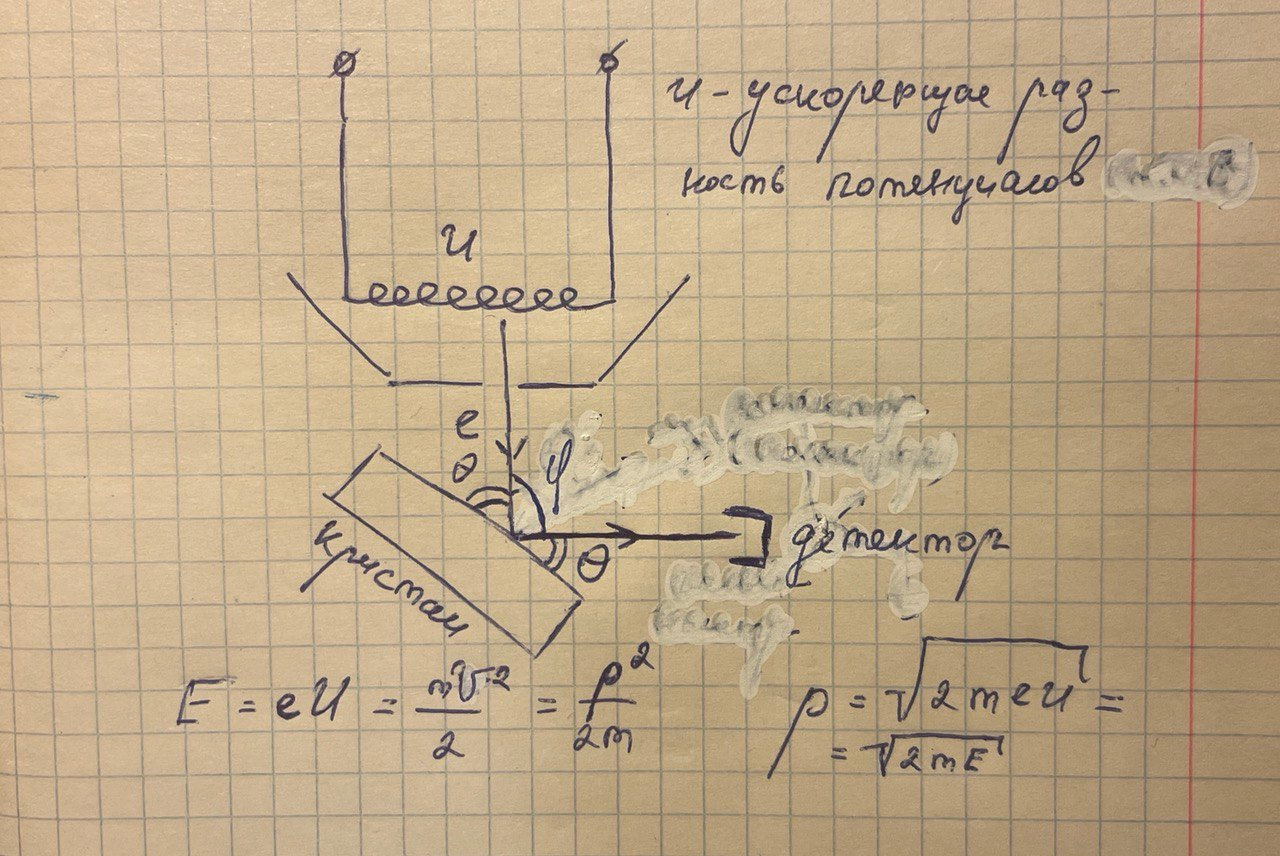 U - ускоряющая раз-
ность потенциалов
U
e
θ
φ
θ
детектор
кристал
E = eU = mv²/2 = p²/2m
p = √2meU =
= √2mE